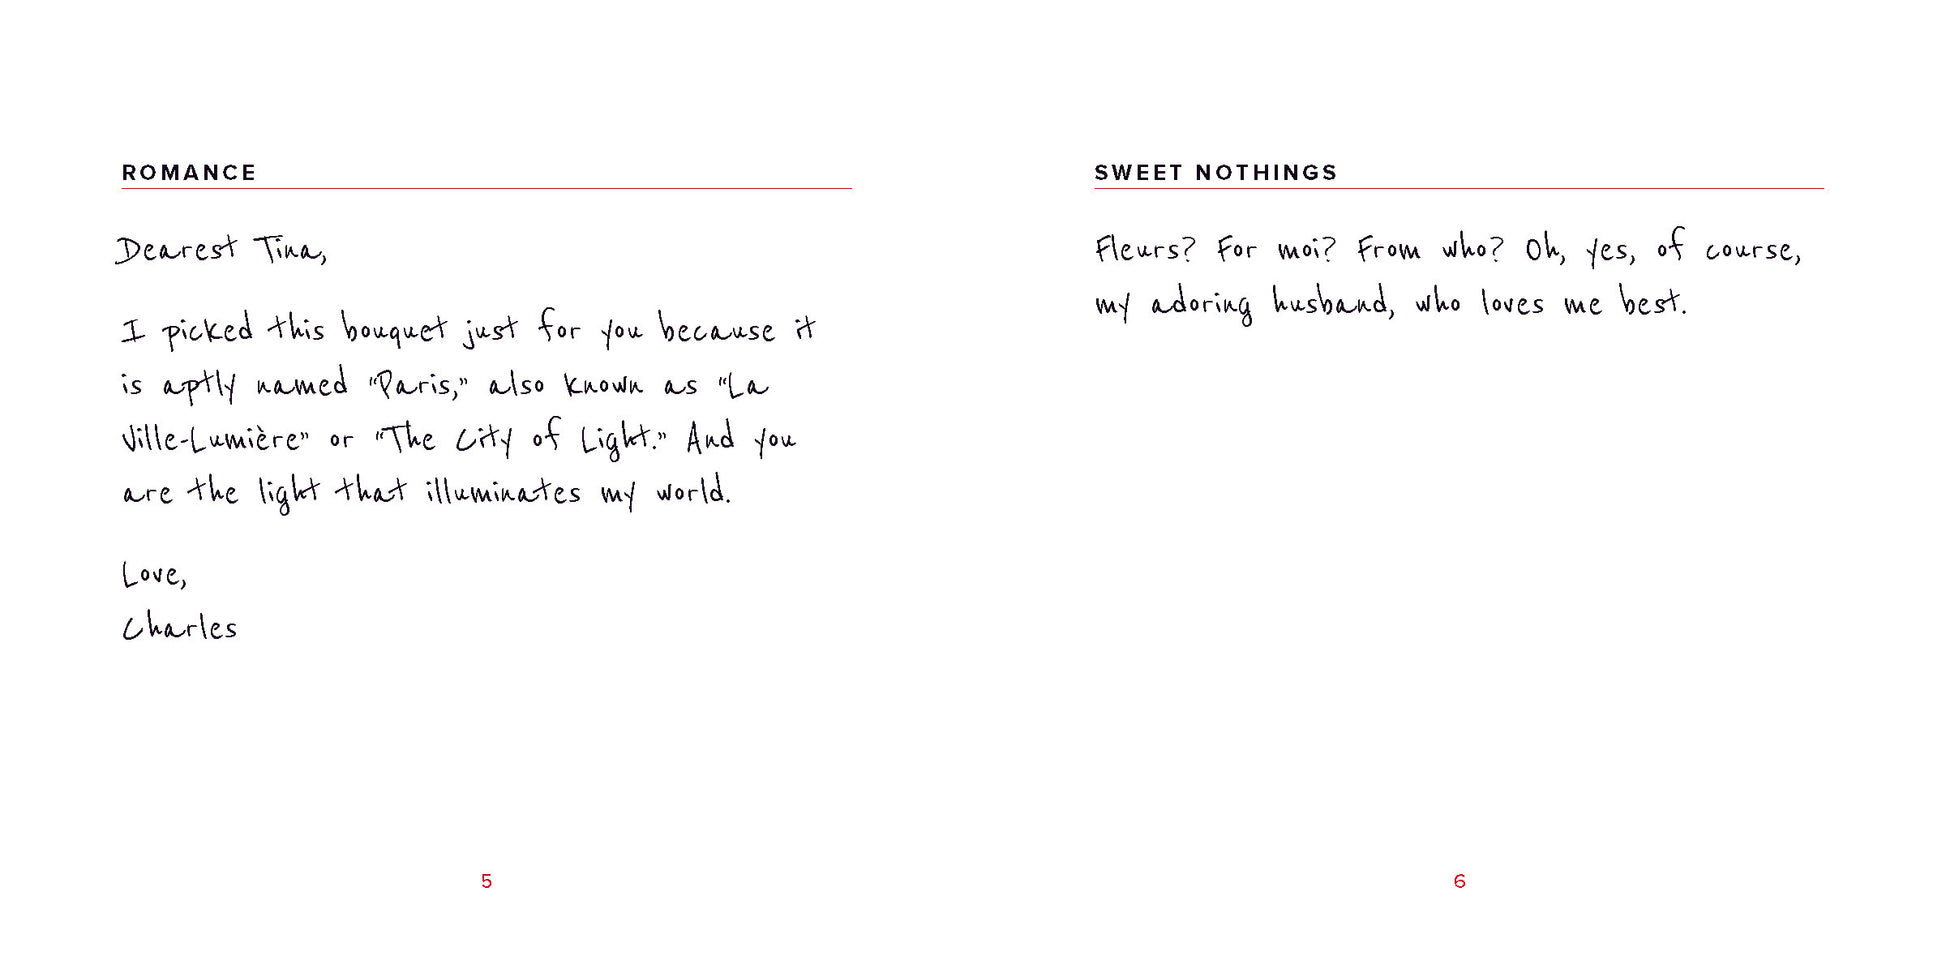 ROMANCE
Dearest Tina,
I picked this bouquet just for you because it
is aptly named "Paris," also known as "La
Ville-Lumière" or "The City of Light." And you
are the light that illuminates my world.
Love,
Charles
5
SWEET NOTHINGS
Fleurs? For moi? From who? Oh, yes, of course,
my adoring husband, who loves me best.
6